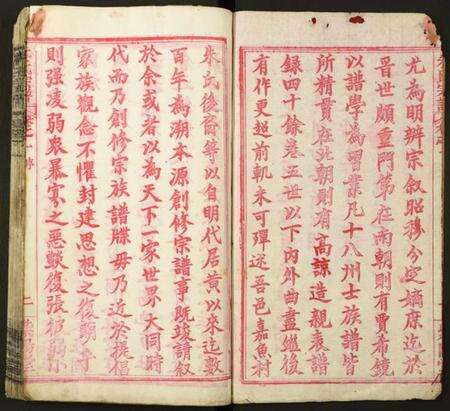 尤為明辨宗叙昭穆分定嫡庶迄於
晉世頗重門第在南朝則有賈希鏡
以譜學為習業凡十八州士族譜皆
所精貫在北朝則有高諒造親表譜
錄四十餘卷五世以下內外曲盡繼後
有作更超前軌未可殫述吾邑嘉魚村
朱氏後裔等以自明代居黃以來迄數
百年為溯本源創修宗譜事既竣請叙
於余或者以為天下一家世界大同時
代而乃創修宗族譜牒毋乃近於提倡
家族觀念不懼封建思想之復萌乎
則强凌弱衆暴寡之惡斅復張